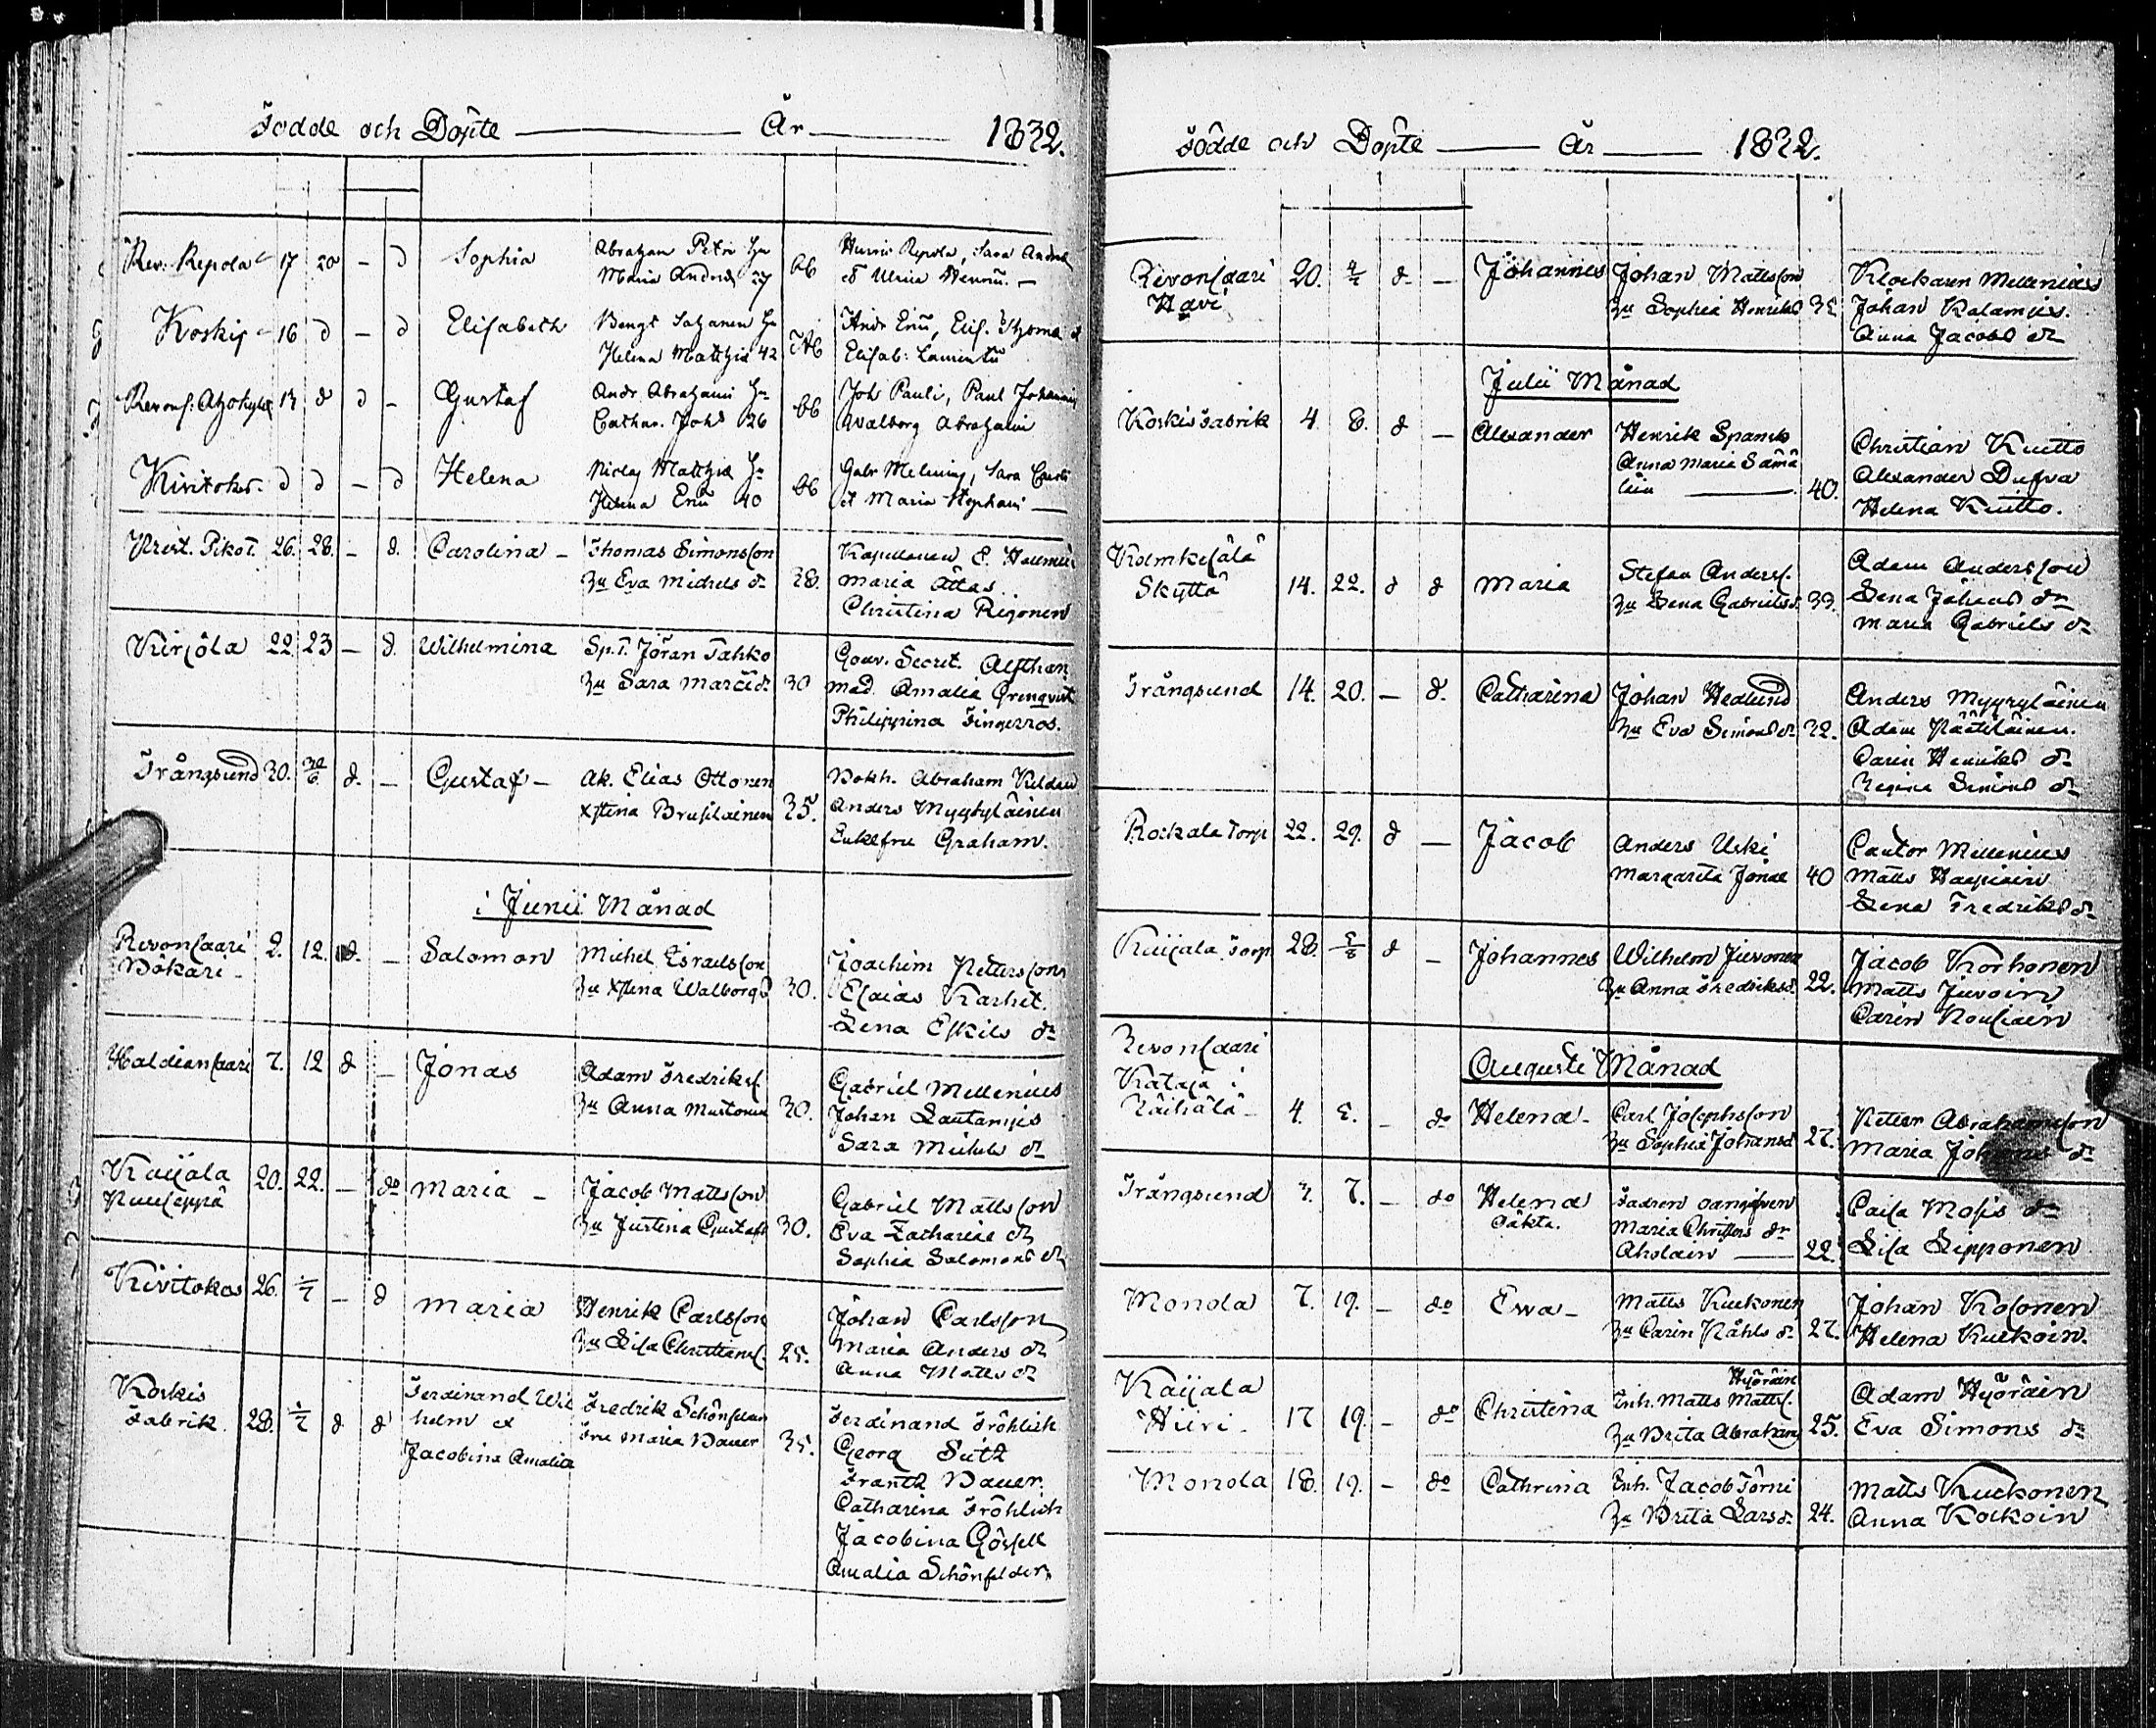 Födde och Döpte År 1832.
Rev: Repola 17 20 – d Sophia Abraham Petri hu
Maria Andreæ 27 bb Henric Repola, Sara Andreæ
d Ulrica Henrici. –
Koskis 16 d – d Elisabeth Bengt hu
Helena Matthiæ 42 Andr Eric, Elis. Thomæ
Elisab:
Gustaf Andr. Abrahami hu
Cathar. Joh 26 bb Joh Pauli, Paul Johannis
Walborg Abrahami
Kivitokas. d d – d Helena Niclas Matthiæ hu
Helena Erici 40 bb Gabr Melenius, Sara
et Maria Stephani
26. 28. – d. Carolina – Thomas Simonsson
hu Eva Michels dr 28. Kapellanen E.
Maria Ottas
Christina Rejonen
Kirjola 22 23 – d. Wilhelmina Sp.T. Jöran Tahko
hu Sara 30 Gouv. Secret. Alfthan
Mad. Amalia Grenqvist
Philippina Fingerroos.
Trångsund 20. d. – Gustaf – Ak. Elias Ottonen
Xstina Brusilainen 35. Bokh. Abraham
Anders Myyryläinen
Enkefru Graham.
i Junii Månad
Revonsaari
Pökäri – 2. 12. d. – Salomon Michel Israelsson
hu Xstina Walborgs 30. Joachim Pettersson
Esaias Karhit.
Lena Eskils dr
Haldiansaari 7. 12 d – Jonas Adam Fredriks.
hu Anna Mustonen 20. Gabriel Mellenius
Johan Lautamies
Sara Michels dr
Kaijala
20. 22. – do Maria – Jacob Mattsson
hu Justina Gustafs 30. Gabriel Mattsson
Eva Zachariæ dr
Sophia Salomons dr
Kivitokas 26. 1/7 – d Maria Henrik Carlsson
hu Lisa Christians. 25. Johan Carlsson
Maria Anders dr
Anna Matts dr
Koskis
Fabrik. 28. 1/7 d d Ferdinand Wil
helm et
Jacobina Amalia Fredrik Schönfelder
Fru Maria Bauer 35. Ferdinand Fröhlich
Georg
Frantz Bauer.
Catharina Fröhlich
Jacobina
Amalia Schönfelder
Födde och Döpte År 1832.
Revonsaari
20. d – Johannes Johan Mattsson
hu Sophia Henriks Klockaren Mellenius
Johan Kalamies.
Anna Jacobs dr
Julii Månad
Koskis Fabrik 4. 8. d – Alexander Henrik
Anna Maria Sämä
läin 40. Christian Kuitto
Alexander Dufva
Helena Kuitto.
Kolmkesälä
Skyttä 14. 22. d d Maria Stefan Anders.
hu Lena Gabriels 33. Adam Andersson
Lena Johans dr
Maria Gabriels dr
Trångsund 14. 20. – d. Catharina Johan Hedlund
hu Eva Simons dr 32. Anders Myyryläinen
Adam Näätäläinen.
Carin Henriks dr
Regina Simons dr
Rockala Torp 22. 29. d – Jacob Anders Uski
Margareta Jonæ 40 Cantor Mellenius
Matts Haapiain
Lena Fredriks dr
Kaijala Torp 28. 5/8 d – Johannes Wilhelm Juvonen
hu Anna Fredriksd. 22. Jacob Korhonen
Matts Juvoin
Carin Nousiain
Augusti Månad
Revonsaari
Kataja i
4 5. – do Helena – Carl Josephsson
hu Sophia Johansd 27. Petter Abrahamsson
Maria Johans dr
Trångsund 7. – do Helena
oäkta. Fadren oangifven
Maria Christers dr
Aholain 22. Caisa Mosis dr
Lisa Lipponen
Monola 7. 19. – do Ewa – Matts Kuckonen
hu Carin Påhls dr 27. Johan Kosonen
Helena Kuckoin.
Kaijala
Hiiri – 17 19. – do Christina Hyöräin
Inh. Matts Matts.
hu Brita Abrahams 25. Adam Hyöräin
Eva Simons dr
Monola 18. 19. – do Cathrina Inh. Jacob Törni
hu Brita Larsd. 24. Matts Kuckonen
Anna Kockoin